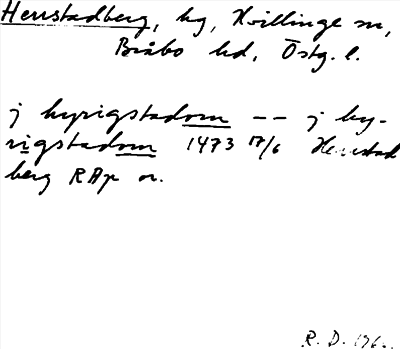 Herrstadberg, hg, Kvillinge sn,
Bråbo hd, Östg. l.
j hyrigstadom -- j hy-
rigstadom 1473 17/6 Herrstad
berg RAp or.
R. D.